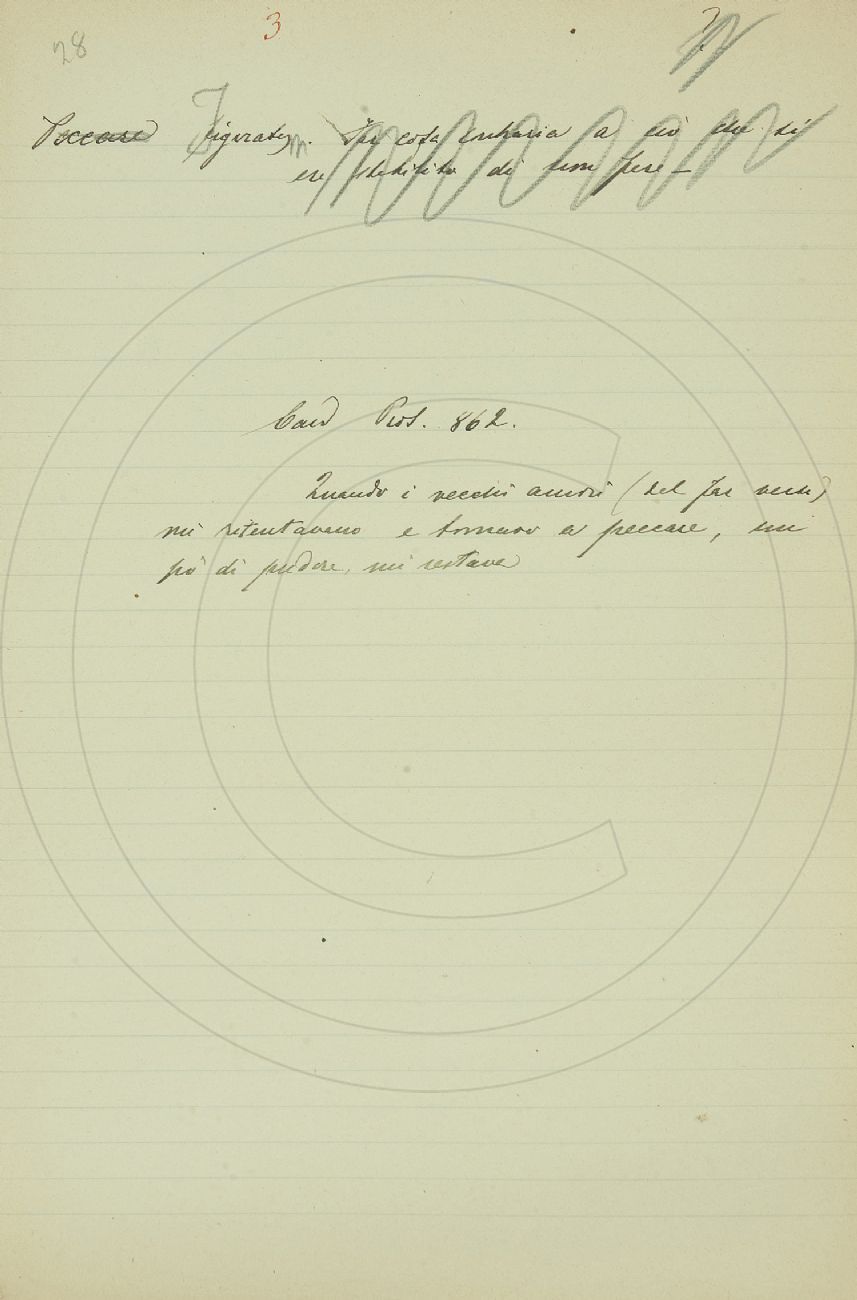 28 3
Peccare Figuratm. Far cosa contraria a ciò che si
era stabilito di non fare —
Card Pros. 862.
Quando i vecchi amori (del far versi)
mi ritentavano e tornavo a peccare, un
pò di pudore mi restava